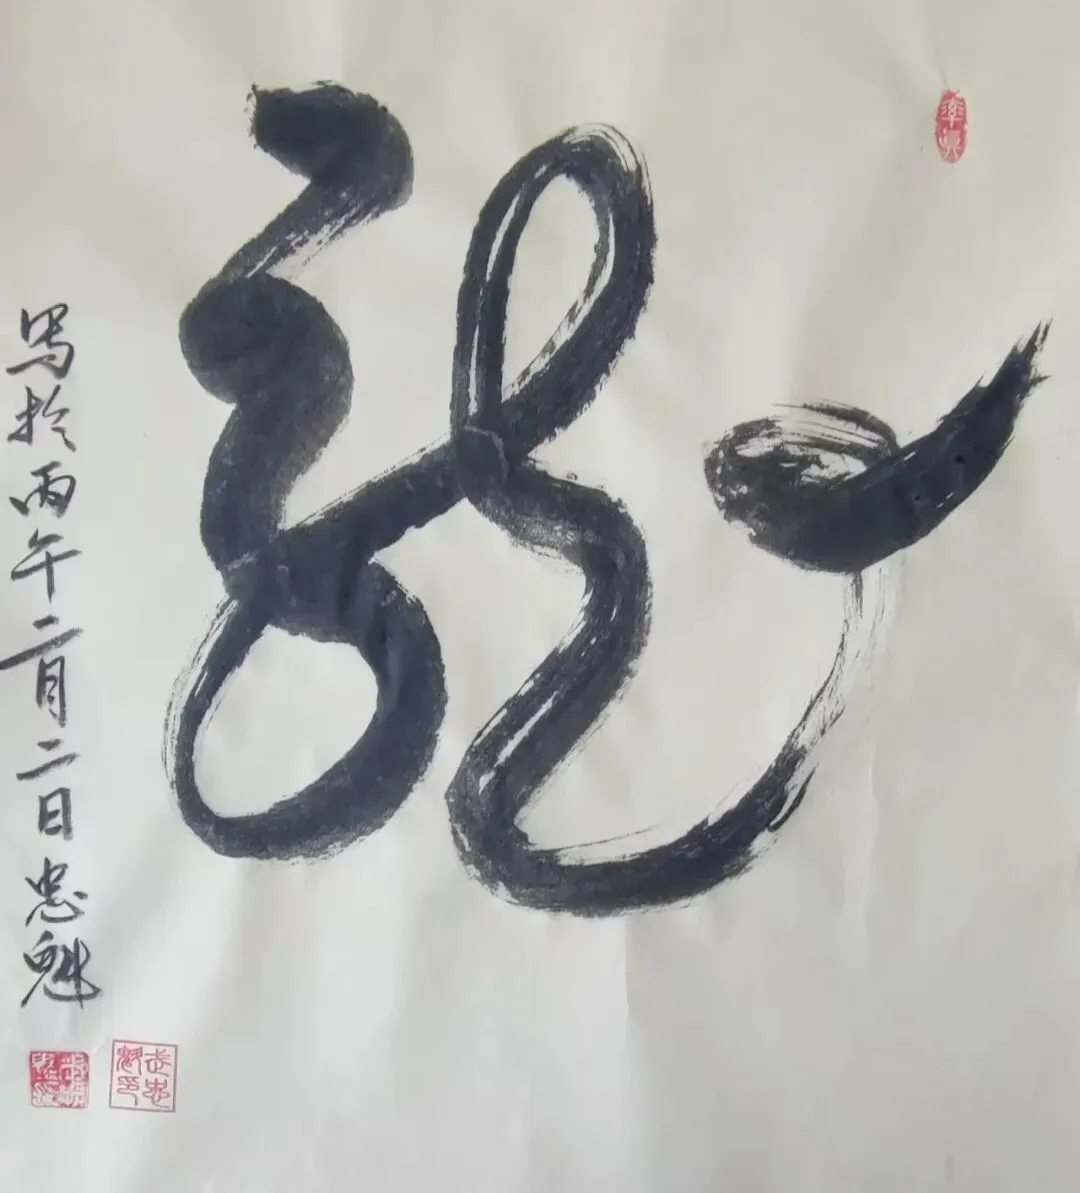 龙
写於丙午二月二日忠魁
率真